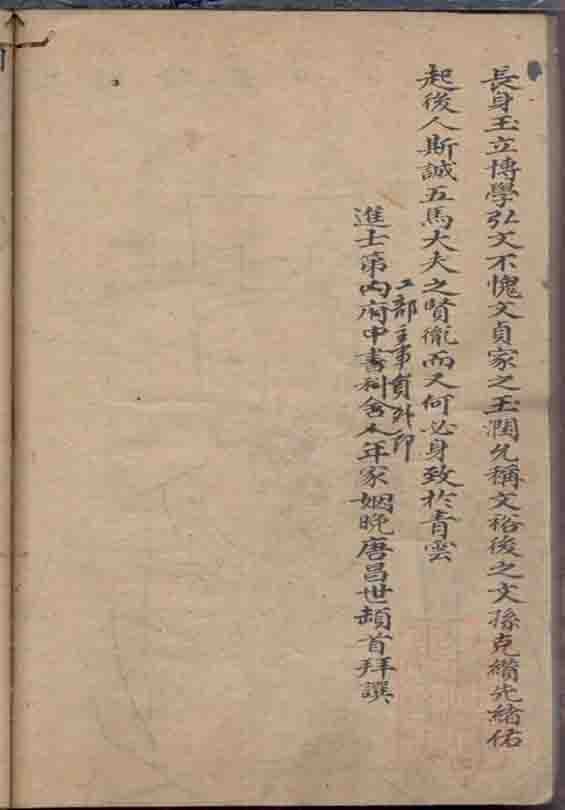 長身玉立博學弘文不愧文貞家之玉潤允稱文裕後之文孫克纘先緒佑
起後人斯誠五馬大夫之賢胤而又何必身致於青雲
工部主事員外郎
進士第內府中書科舍人年家姻晚唐昌世頓首拜譔